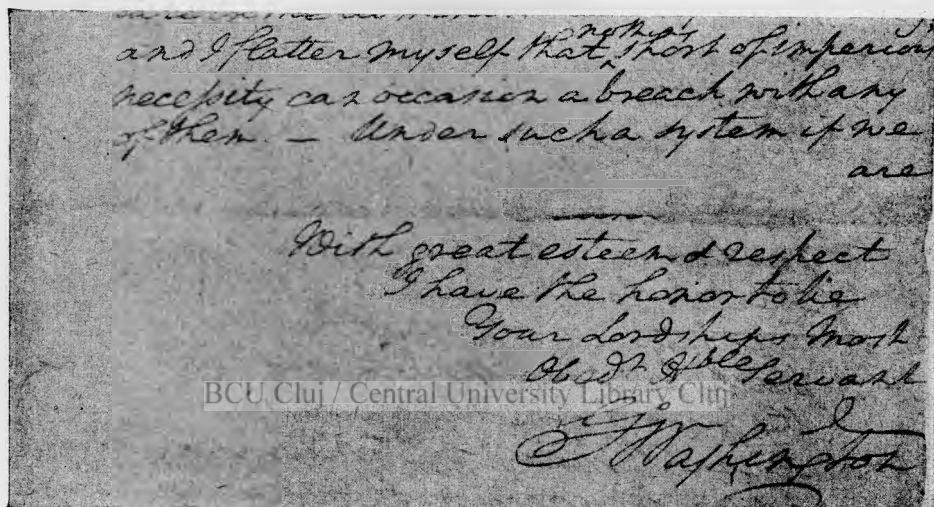 and I flatter myself that nothing short of imperious
necessity can occasion a breach with any
of them. — Under such a system if we
are
With great esteem & respect
I have the honor to be
Your Lordships Most
Obedt Hble Servant
BCU Cluj / Central University Library Cluj
G Washington